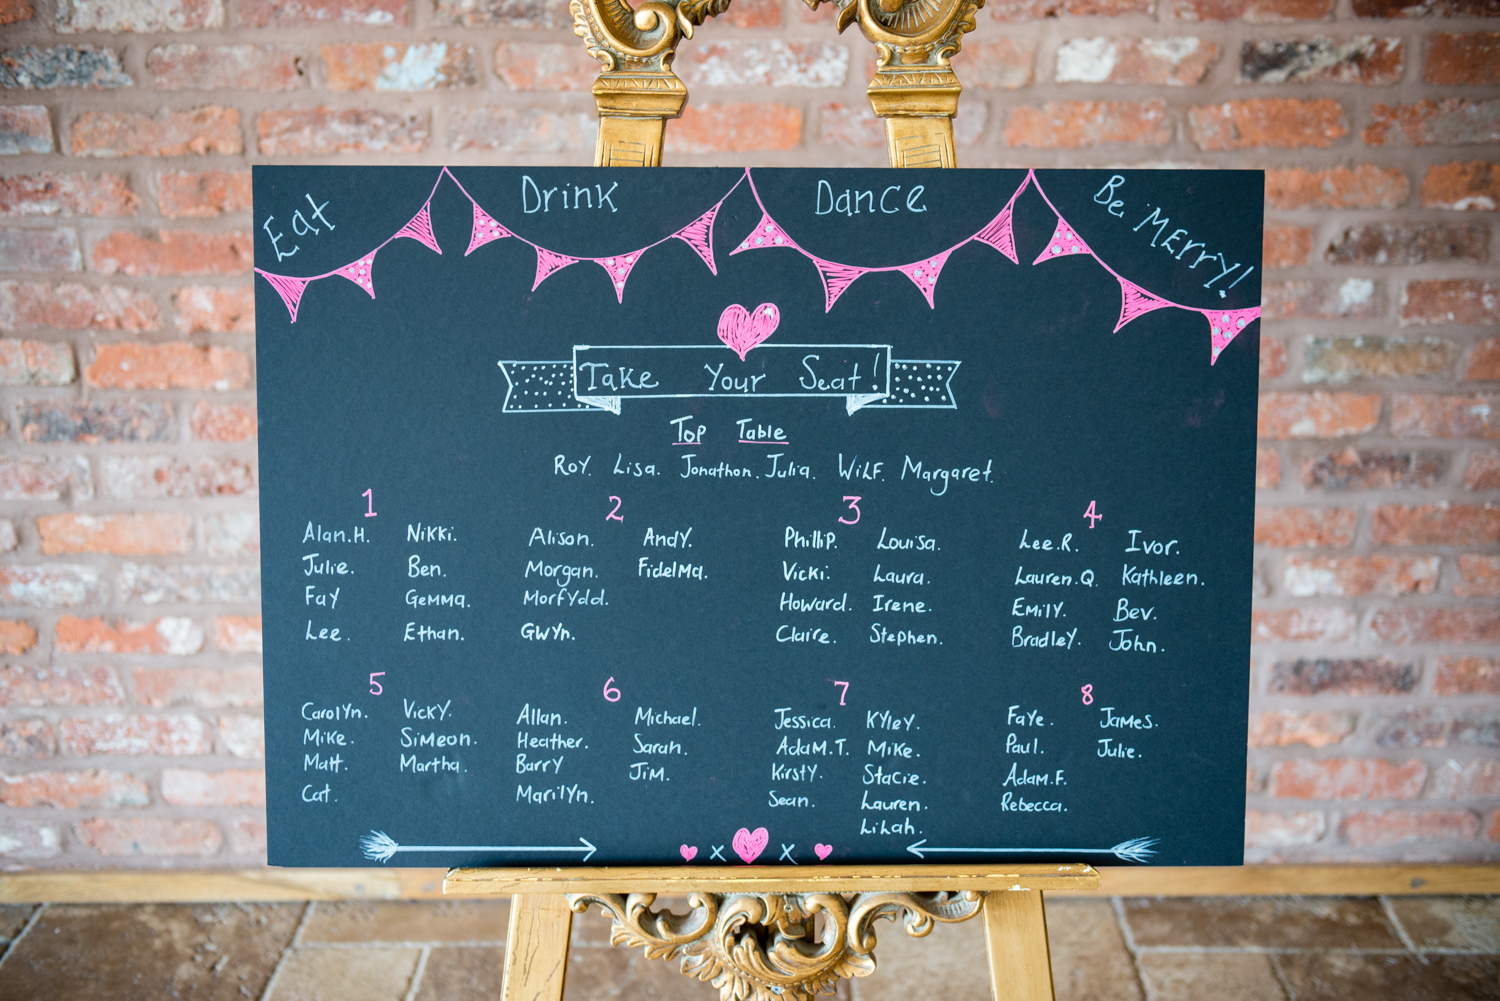 Eat Drink Dance Be Merry!
Take Your Seat!
Top Table
Roy. Lisa. Jonathon. Julia. Wilf. Margaret.
1
Alan.H. Nikki.
Julie. Ben.
Fay Gemma.
Lee. Ethan.
2
Alison. Andy.
Morgan. Fidelma.
Morfydd.
Gwyn.
3
Phillip. Louisa.
Vicki. Laura.
Howard. Irene.
Claire. Stephen.
4
Lee.R. Ivor.
Lauren.Q. Kathleen.
Emily. Bev.
Bradley. John.
5
Carolyn. Vicky.
Mike. Simeon.
Matt. Martha.
Cat.
6
Allan. Michael.
Heather. Sarah.
Barry Jim.
Marilyn.
7
Jessica. Kyley.
Adam.T. Mike.
Kirsty. Stacie.
Sean. Lauren.
Lilah.
8
Faye. James.
Paul. Julie.
Adam.F.
Rebecca.
x x